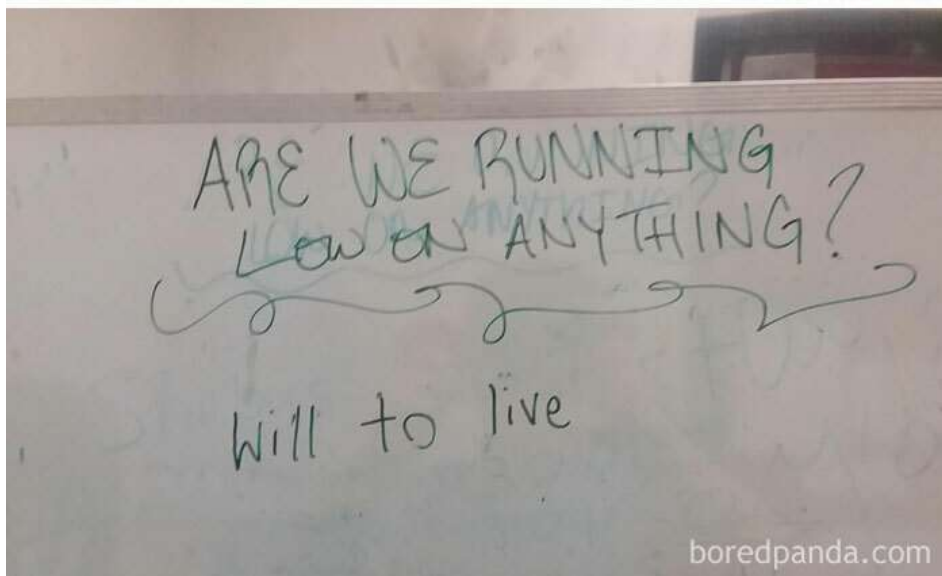 ARE WE RUNNING
LOW ON ANYTHING?
Will to live
boredpanda.com